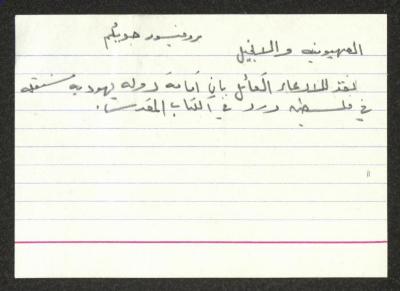 بروفيسور جويكم
الصهيونيه والانجيل
نقد للادعاء القائل بان اقامة دوله يهوديه مستقله
في فلسطين ورد في الكتاب المقدس.